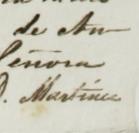 de Au-
Señora
D. Martinez